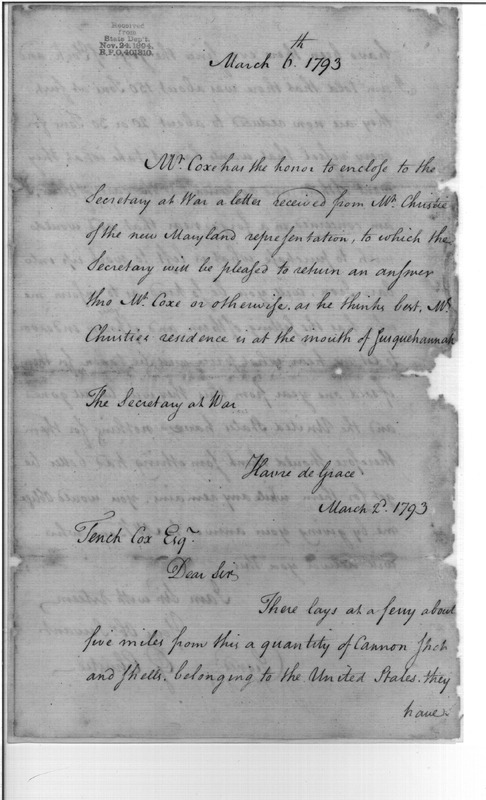 Received
from
State Dep't.
Nov. 24. 1894.
R.P.O. 401810.
March 6.th 1793
Mr. Coxe has the honor to enclose to the
Secretary at War a letter received from Mr. Christie
of the new Maryland representation, to which the
Secretary will be pleased to return an answer
thro Mr. Coxe or otherwise. as he thinks best. Mr.
Christies residence is at the mouth of Susquehannah
The Secretary at War
Havre de Grace
March 2d. 1793
Tench Cox Esqr.
Dear Sir
There lays at a ferry about
five miles from this a quantity of Cannon Shot
and Shells. belonging to the United States. they
have